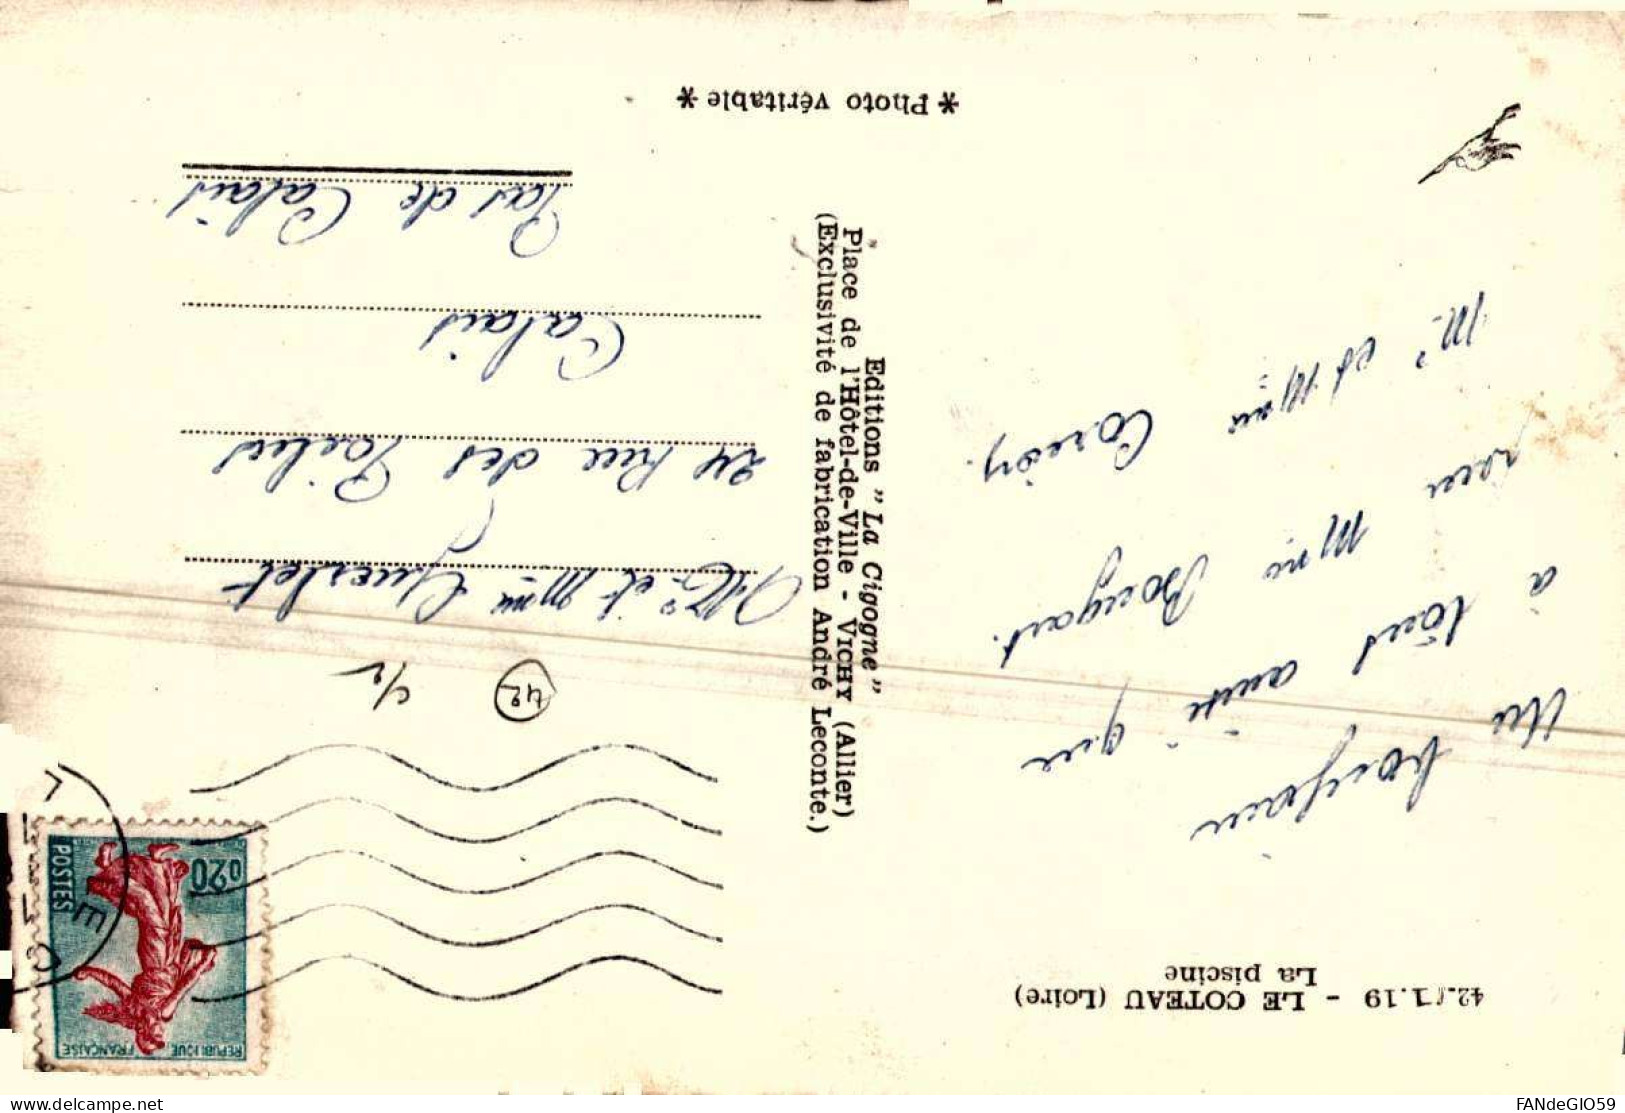 42.71.19 - LE COTEAU (Loire)
La piscine
Un bonjour
à tous ainsi que
pour Mme Bougart.
Mr et Mme
Editions "La Cigogne"
Place de l'Hôtel-de-Ville - VICHY (Allier)
(Exclusivité de fabrication André Leconte.)
* Photo véritable *
REPUBLIQUE FRANÇAISE
0,20
POSTES
42
Mr et Mme
24 Rue des
Calais
Pas de Calais
FANdeGIO59